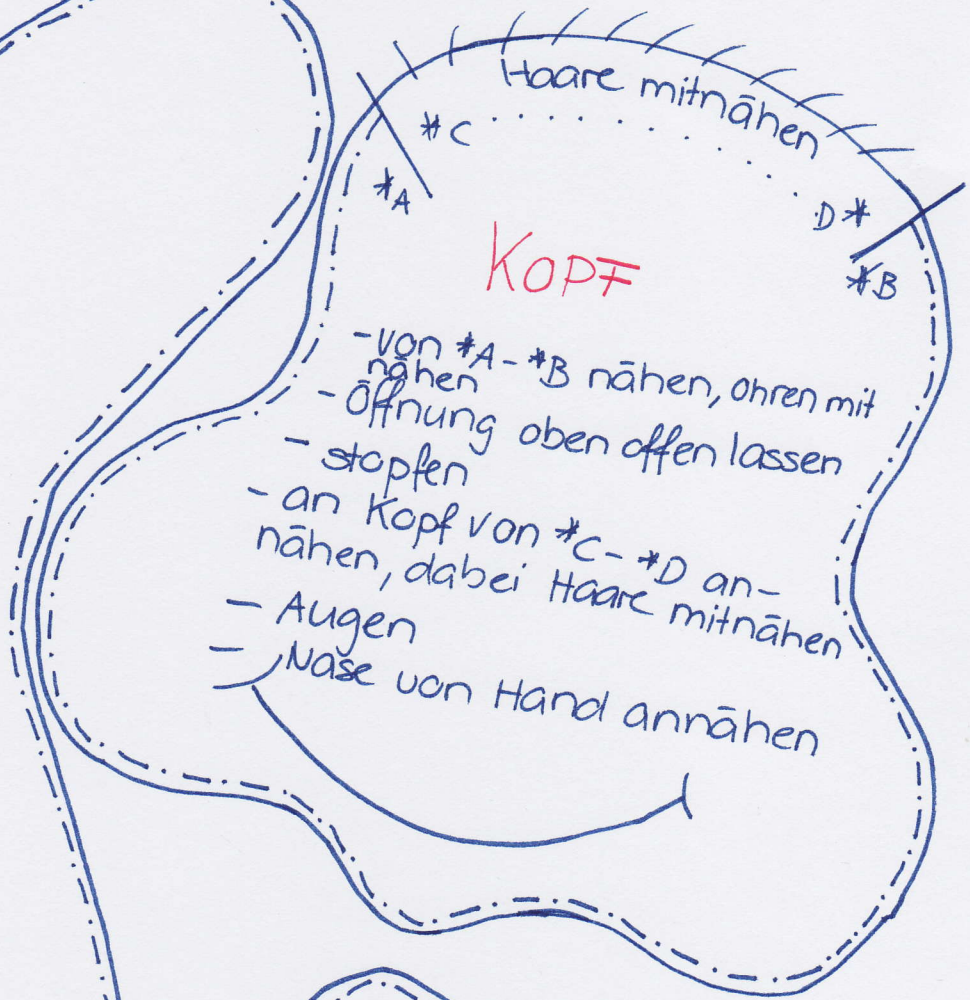 Haare mitnähen
*C
*A
D*
*B
KOPF
- von *A - *B nähen, Ohren mit
nähen
- Öffnung oben offen lassen
- stopfen
- an Kopf von *C - *D an-
nähen, dabei Haare mitnähen
- Augen
- Nase von Hand annähen